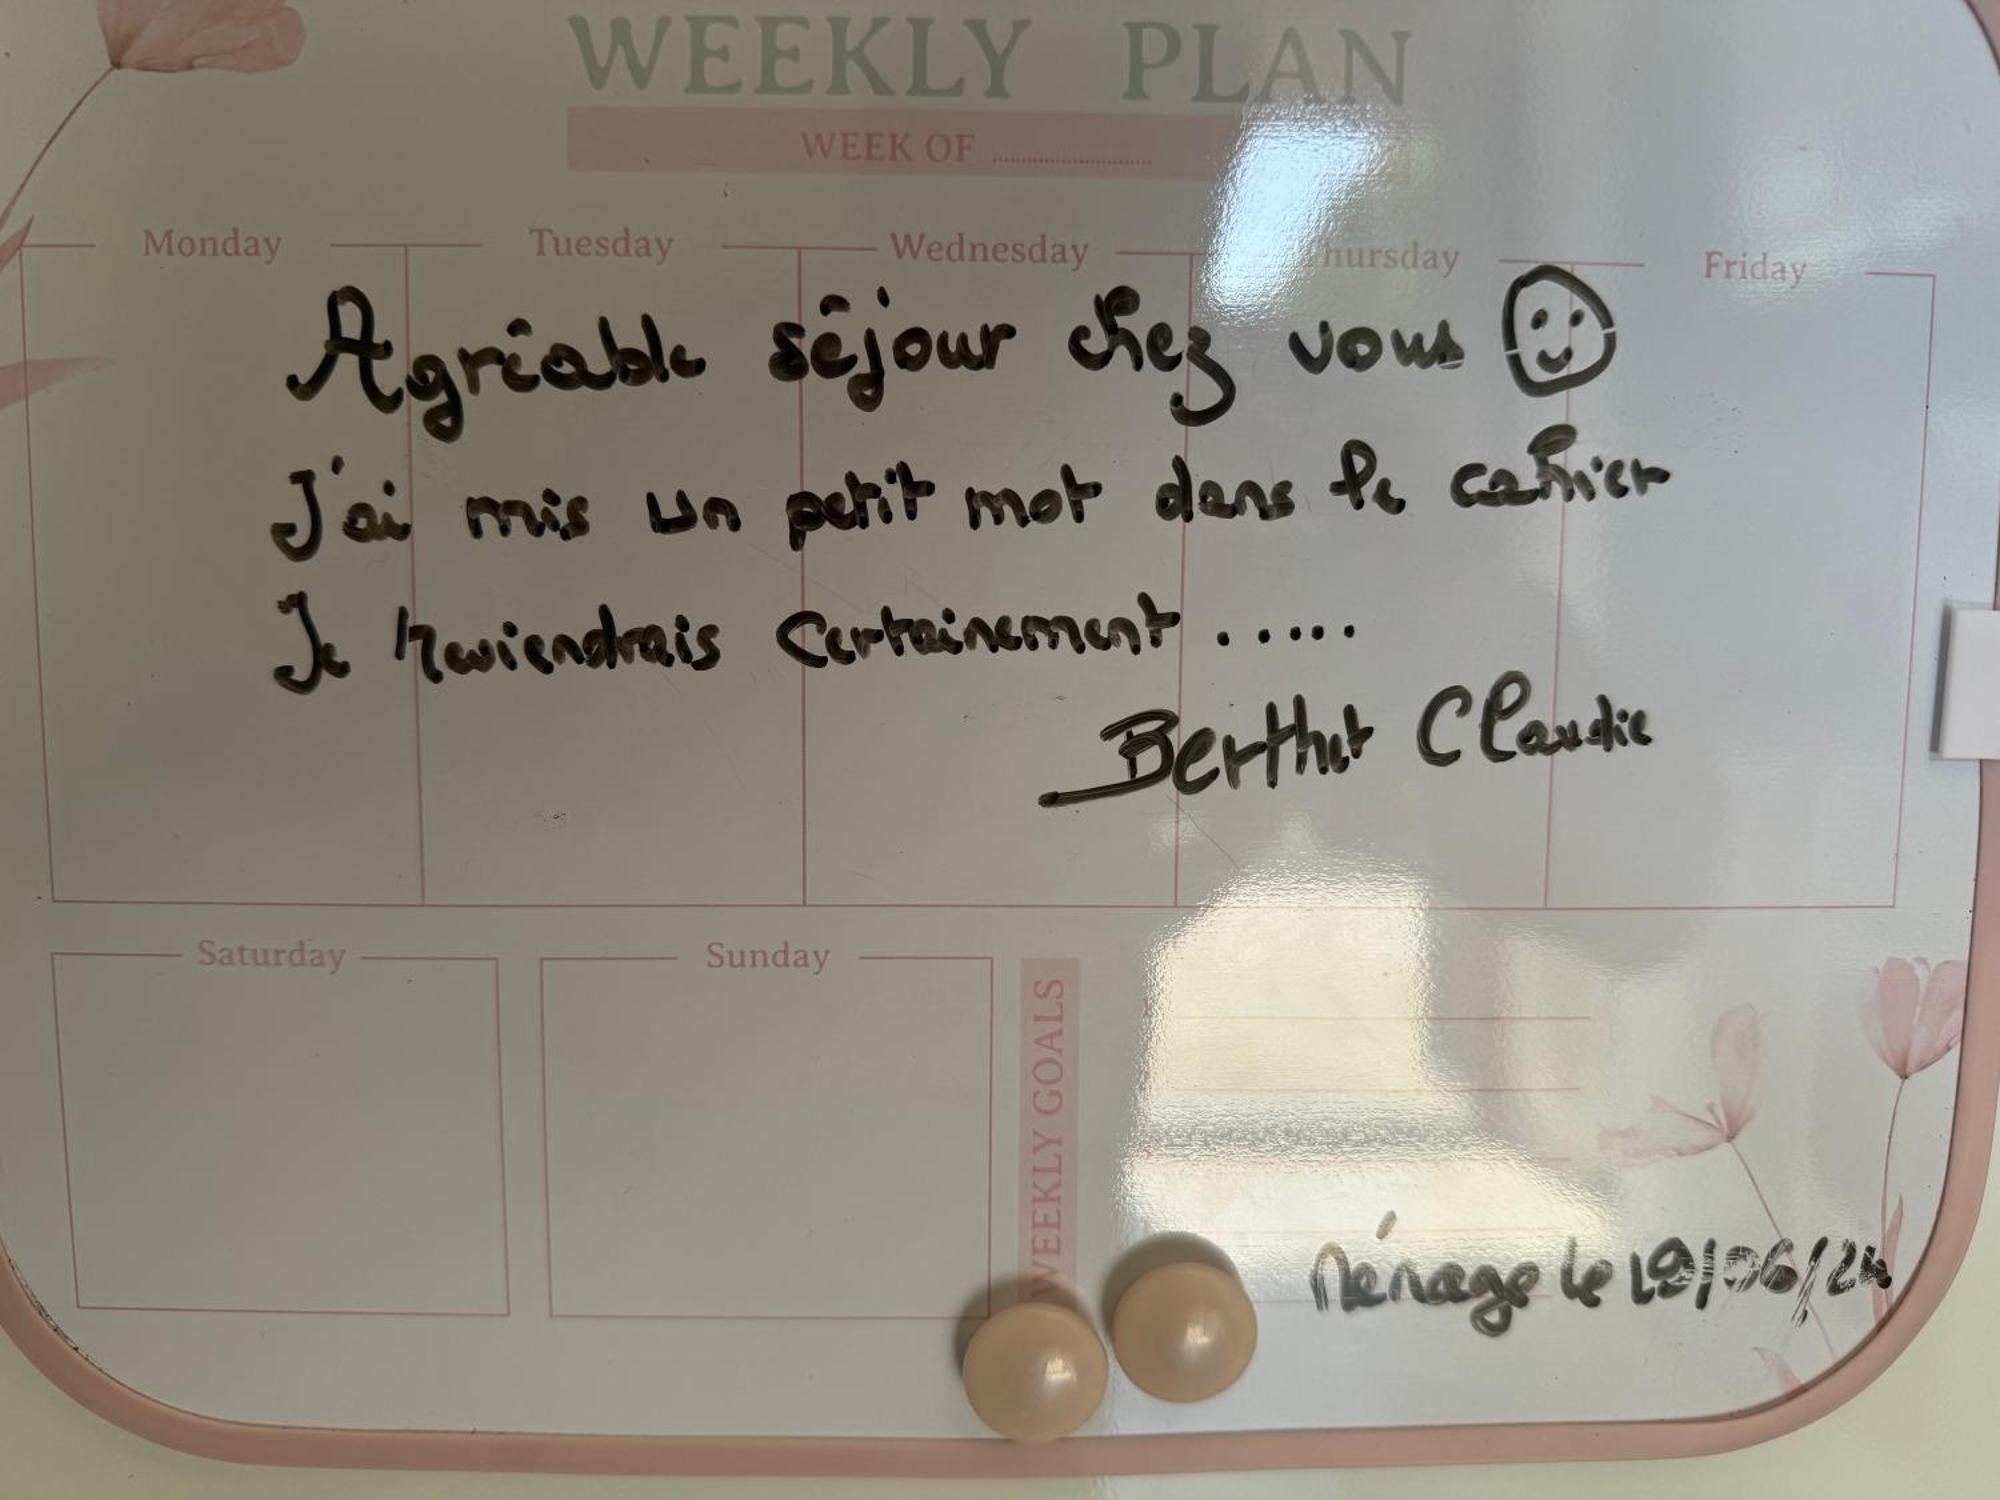 WEEKLY PLAN
WEEK OF ..............................
Monday Tuesday Wednesday Thursday Friday
Agréable séjour chez vous
J'ai mis un petit mot dans le cahier
Je reviendrais certainement .....
Berthet Claudie
Saturday Sunday
WEEKLY GOALS
Ménage le 19/06/24